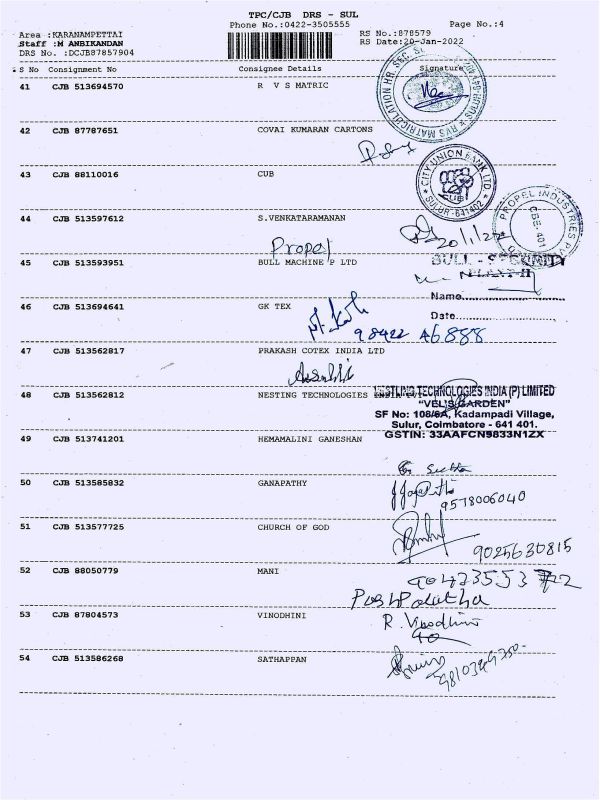 TPC/CJB DRS - SUL
Phone No.:0422-3505555
Page No.:4
Area :KARANAMPETTAI
Staff :M ANBIKANDAN
DRS No. :DCJB87857904
RS No.:878579
RS Date:20-Jan-2022
S No Consignment No Consignee Details Signature
41 CJB 513694570 R V S MATRIC
42 CJB 87787651 COVAI KUMARAN CARTONS
43 CJB 88110016 CUB
CITY UNION BANK LTD.
CUB
SULUR-641402
44 CJB 513597612 S.VENKATARAMANAN
PROPEL INDUSTRIES
CBE. 401
20/1/22
Propel
45 CJB 513593951 BULL MACHINE P LTD
BULL - SECURITY
PLANT-II
Name
Date
46 CJB 513694641 GK TEX
98422 46888
47 CJB 513562817 PRAKASH COTEX INDIA LTD
48 CJB 513562812 NESTING TECHNOLOGIES INDIA PVT
NESTLING TECHNOLOGIES INDIA (P) LIMITED
"VEL'S GARDEN"
SF No: 108/6A, Kadampadi Village,
Sulur, Coimbatore - 641 401.
GSTIN: 33AAFCN9833N1ZX
49 CJB 513741201 HEMAMALINI GANESHAN
50 CJB 513585832 GANAPATHY
9578006040
51 CJB 513577725 CHURCH OF GOD
9025630815
52 CJB 88050779 MANI
Pushpalatha
53 CJB 87804573 VINODHINI
R. Vinodhini
54 CJB 513586268 SATHAPPAN